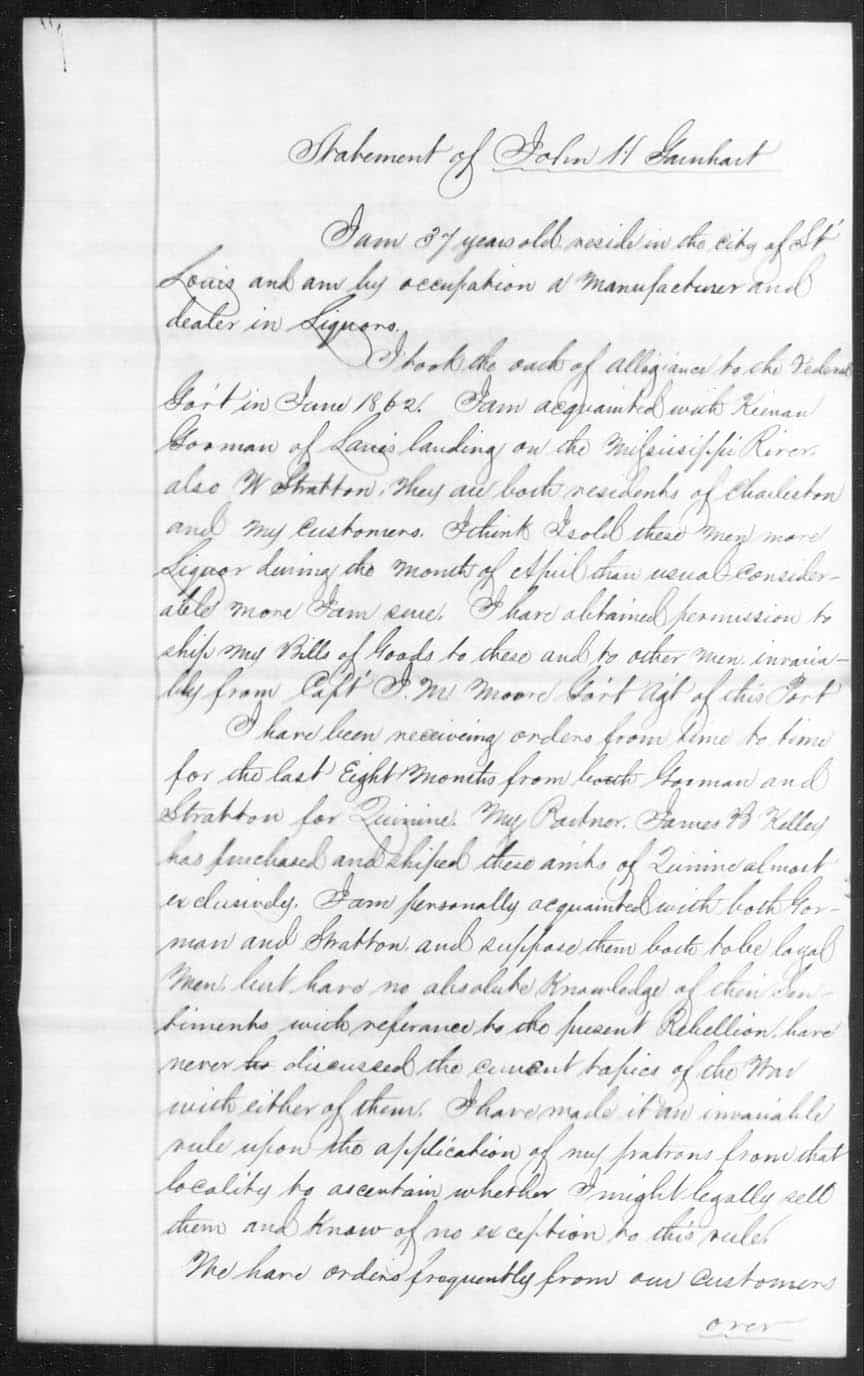 Statement of John H Garnhart
I am 37 years old reside in the city of St
Louis and am by occupation a Manufacturer and
dealer in Liquors.
I took the oath of allegiance to the Federal
Gov't in June 1862. I am acquainted with
Gorman of landing on the Missisippi River.
also W Stratton. They are both residents of Charleston
and my customers. I think I sold these men more
Liquor during the Month of April than usual consider-
able more I am sure. I have obtained permission to
ship my Bills of Goods to these and to other men invaria-
bly from Capt J. M. Moore Gov't Agt of this Port
I have been receiveing orders from time to time
for the last Eight Months from both Gorman and
Stratton for Quinine. My Partner. James B Kelley
has purchased and shiped these amts of Quinine almost
exclusively. I am personally acquainted with both Gor-
man and Stratton. and suppose them both to be loyal
Men. but have no absolute Knowledge of their Sen-
timents with referance to the present Rebellion. have
never discussed the current topics of the War
with either of them. I have made it an invariable
rule upon the application of my patrons from that
locality to ascertain whether I might legally sell
them and know of no exception to this rule.
We have orders frequently from our customers
over